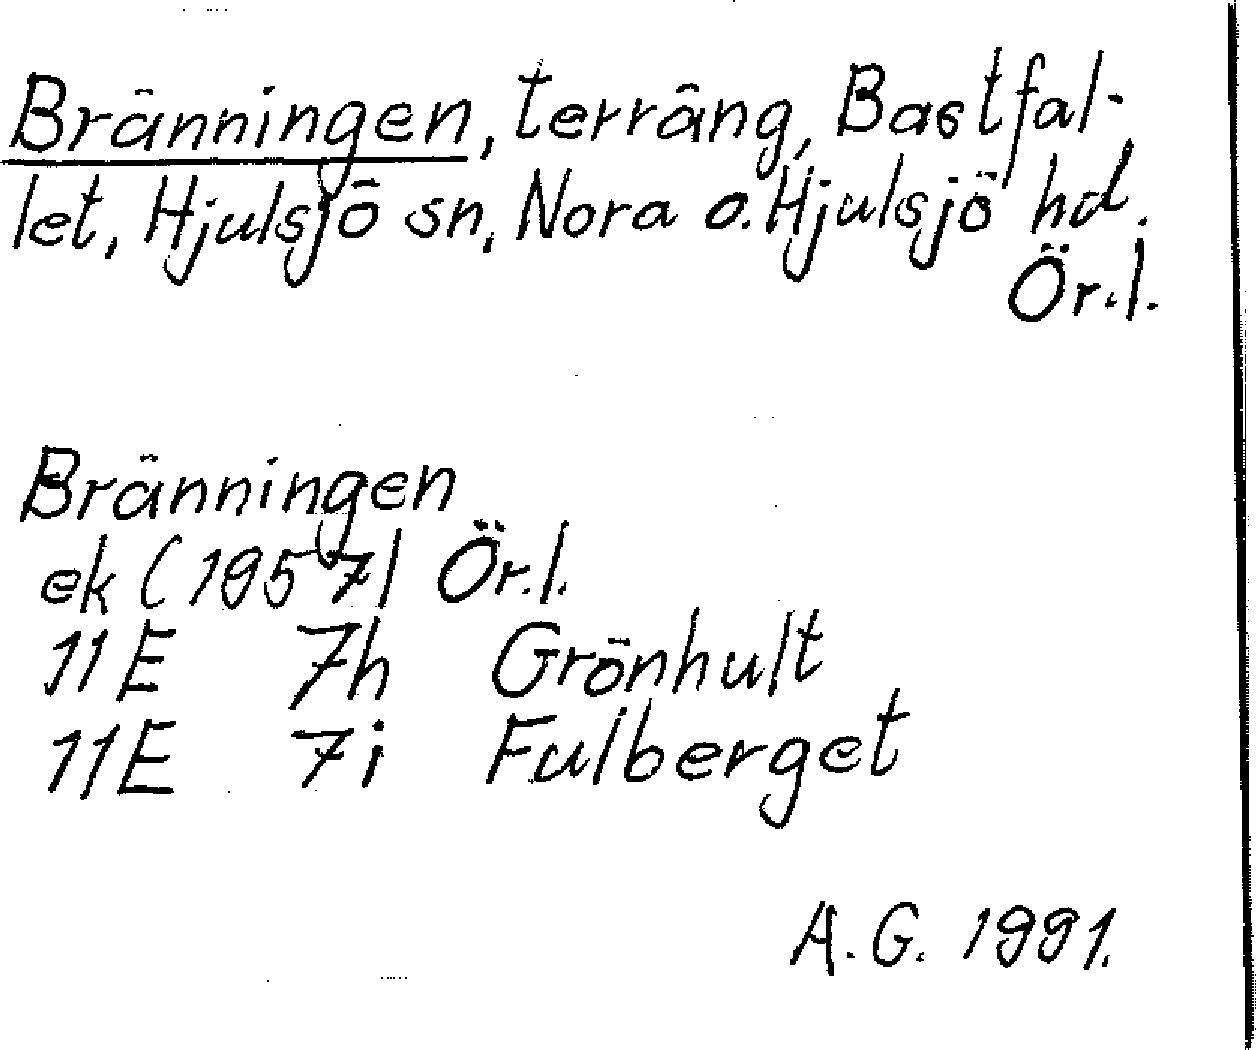 Bränningen, terräng, Bastfal-
let, Hjulsjö sn, Nora o. Hjulsjö hd.
Ör.l.
Bränningen
ek (1957) Ör.l.
11E 7h Grönhult
11E 7i Fulberget
A.G. 1991.